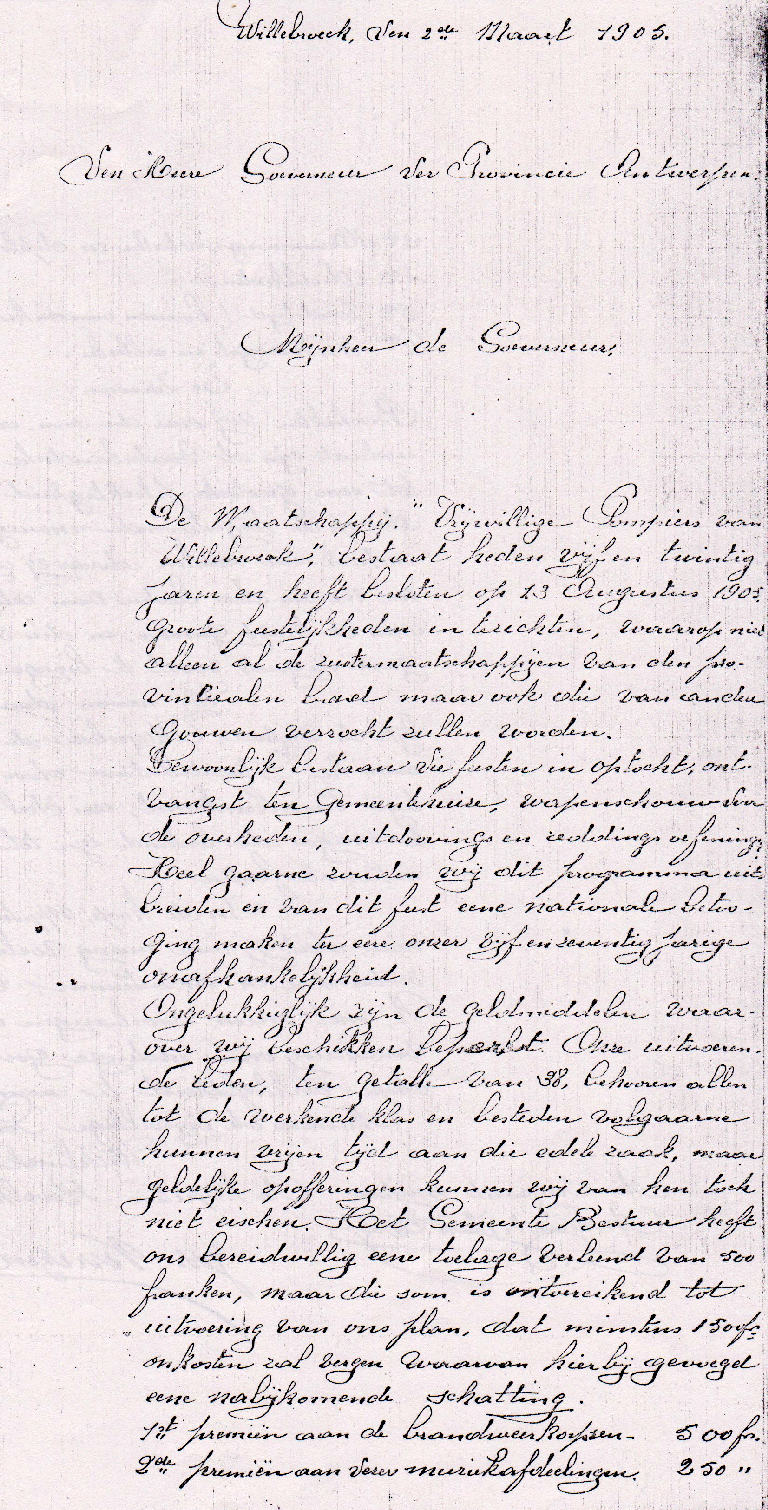 Willebroeck, den 2de Maart 1905.
Den Heere Gouverneur der Provincie Antwerpen.
Mijnheer de Gouverneur,
De Maatschappij "Vrijwillige Pompiers van
Willebroek", bestaat heden vijf en twintig
jaren en heeft besloten op 13 Augustus 1905
groote feestelijkheden in te richten, waarop niet
alleen al de zustermaatschappijen van den pro-
vincialen bond maar ook die van andere
gouwen verzocht zullen worden.
Gewoonlijk bestaan die feesten in optocht, ont-
vangst ten Gemeentehuize, wapenschouw door
de overheden, uitdoovings en reddings oefening.
Heel gaarne zouden wij dit programma uit-
breiden en van dit feest eene nationale betoo-
ging maken ter eere onzer vijf en zeventig jarige
onafhankelijkheid.
Ongelukkiglijk zijn de geldmiddelen waar-
over wij beschikken beperkt. Onze uitvoeren-
de leden, ten getalle van 38, behooren allen
tot de werkende klas en besteden volgaarne
hunnen vrijen tijd aan die edele zaak, maar
geldelijke opofferingen kunnen wij van hen toch
niet eischen. Het Gemeente Bestuur heeft
ons bereidwillig eene toelage verleend van 500
franken, maar die som is ontoereikend tot
uitvoering van ons plan, dat minstens 1500 fr
onkosten zal vergen waarvan hierbij gevoegd
eene nabijkomende schatting.
1st premiën aan de brandweerkorpsen - 500 fr.
2de premiën aan dezer muziekafdeelingen. 250 "